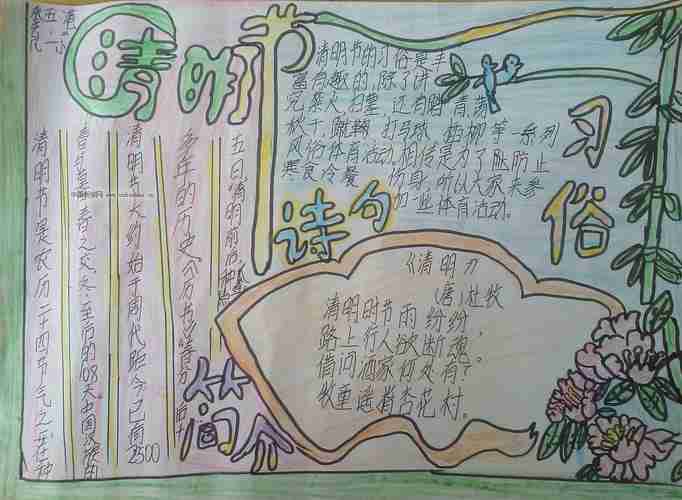 清明节
清明节的习俗是丰
富有趣的，除了讲
究禁火、扫墓，还有踏青、荡
秋千、蹴鞠、打马球、插柳等一系列
风俗体育活动。相传是为了能防止
寒食冷餐伤身，所以大家来参
加一些体育活动。
习俗
诗句
《清明》
（唐）杜牧
清明时节雨纷纷，
路上行人欲断魂。
借问酒家何处有？
牧童遥指杏花村。
清明节是农历二十四节气之一在种
春与草春之交矣,至而的108天中国汉族的
清明节大约始于周代距今已有2500
多年的历史《历书》春分后十
五日 清明前后 种
简介